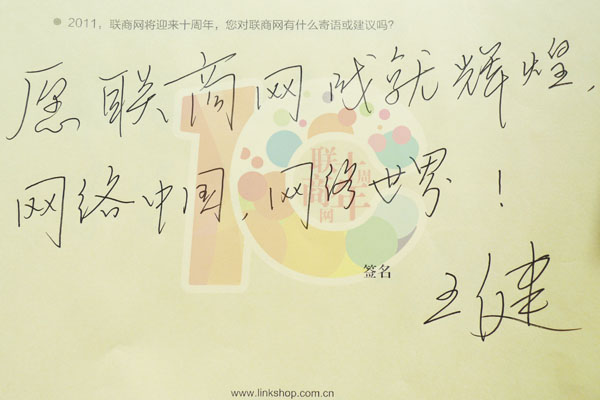 2011，联商网将迎来十周年，您对联商网有什么寄语或建议吗？
愿联商网成就辉煌，
网络中国，网络世界！
联商网
十周年
10
签名
王健
www.linkshop.com.cn